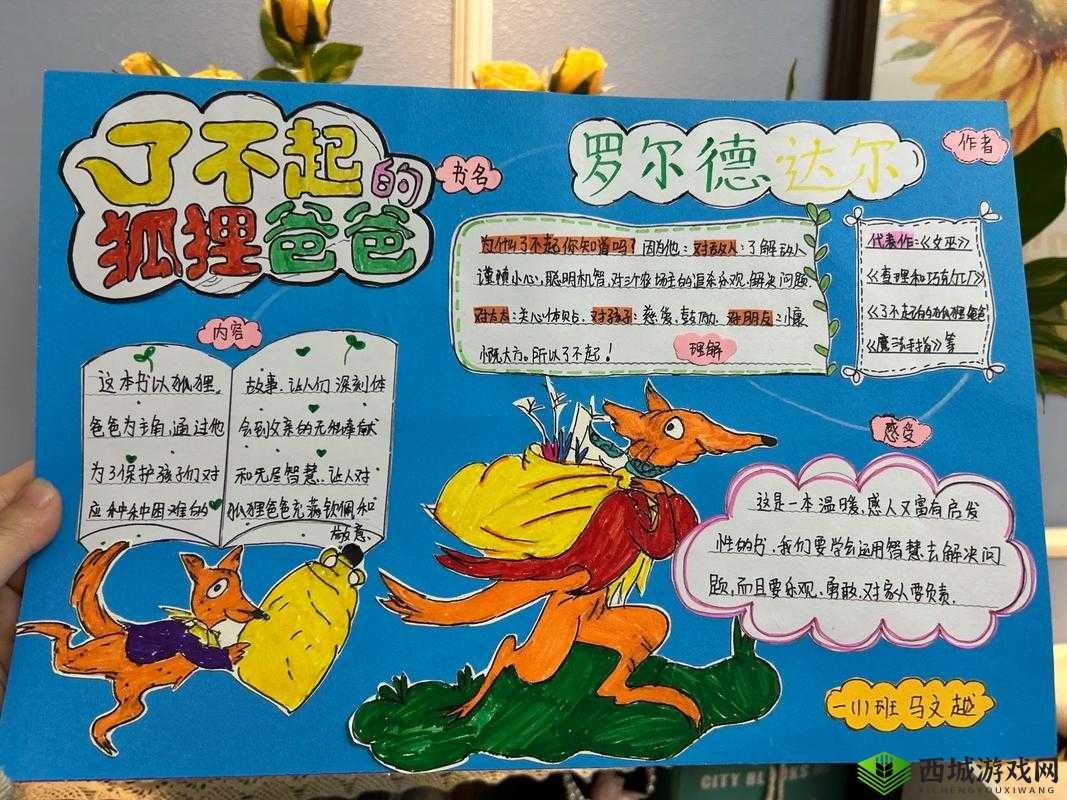 了不起的
狐狸爸爸
书名
罗尔德达尔
作者
为什么了不起你知道吗?因为他:对敌人:了解敌人
谨慎小心,聪明机智.对三个农场主的追杀乐观.解决问题
对太太:关心体贴.对孩子:慈爱.鼓励.对朋友:慷
慨大方。所以了不起!
理解
代表作:《女巫》
《查理和巧克力工厂》
《了不起的狐狸爸爸
《魔法手指》等
内容
这本书以狐狸
爸爸为主角,通过他
为了保护孩子们对
应种种困难的
故事.让人们深刻体
会到父亲的无私奉献
和无尽智慧.让人对
狐狸爸爸充满钦佩和
敬意.
感受
这是一本温暖,感人又富有启发
性的书.我们要学会运用智慧去解决问
题,而且要乐观、勇敢.对家人要负责.
一(1)班 马文越
CITY BL
西城游戏网
XICHENGYOUXIWANG